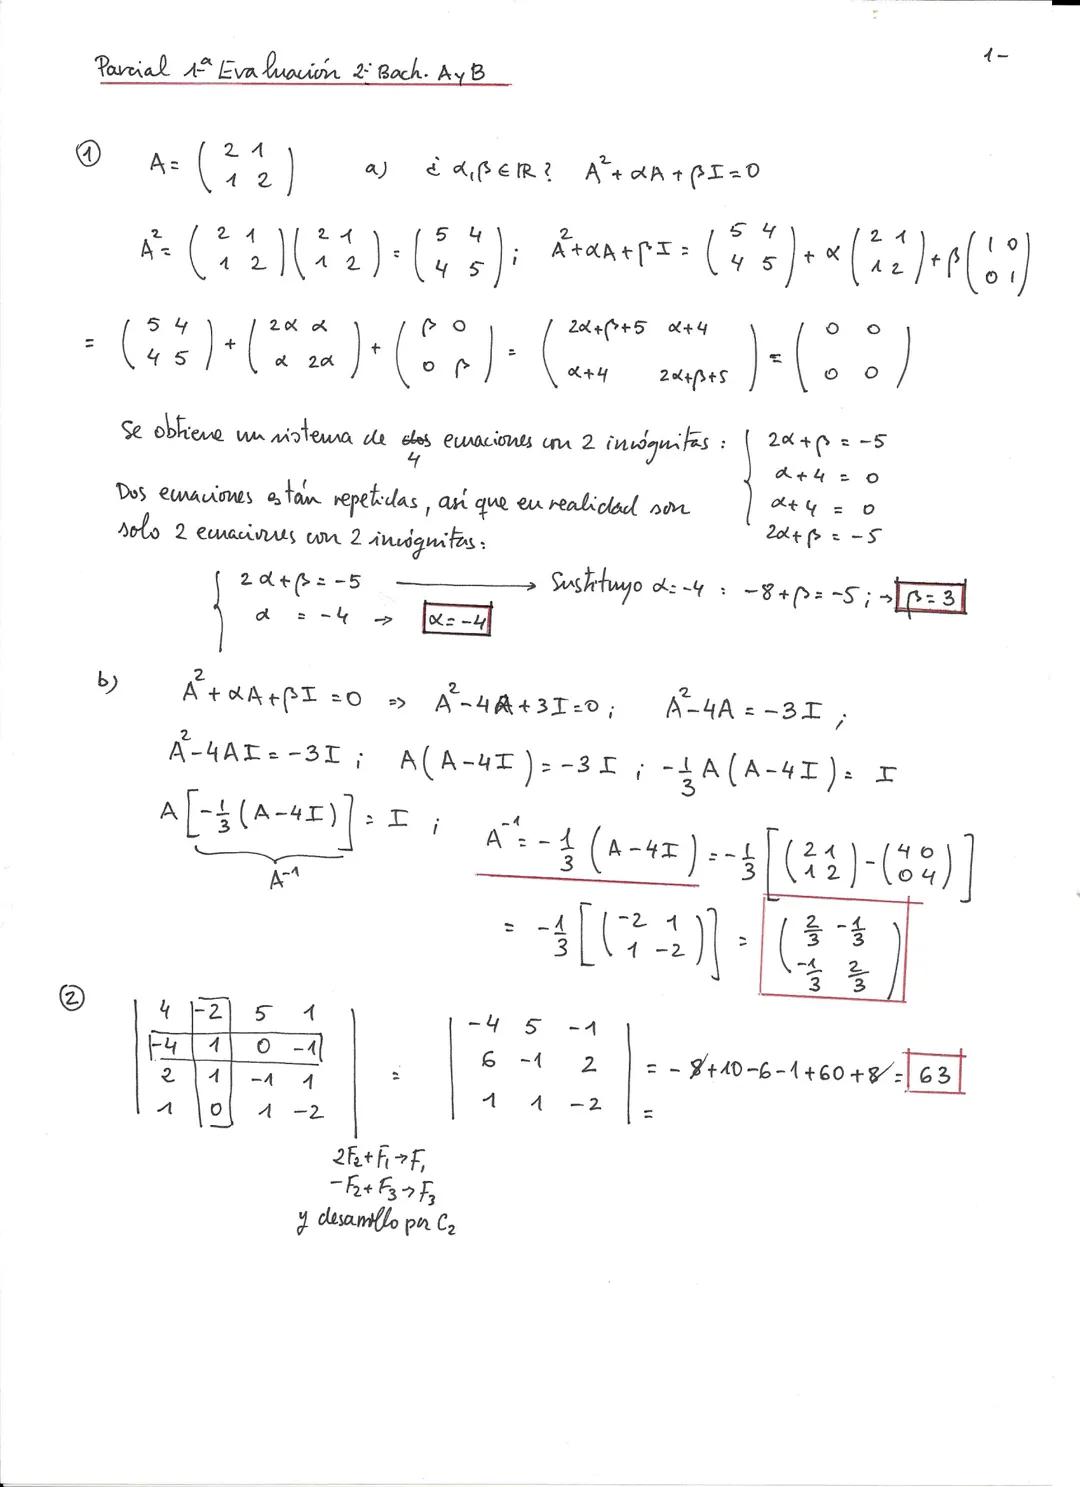 1-
Parcial 1ª Evaluación 2º Bach. A y B
① A = ( 2 1 ; 1 2 )   a) ¿ α, β ∈ ℝ ? A² + αA + βI = 0
A² = ( 2 1 ; 1 2 )( 2 1 ; 1 2 ) = ( 5 4 ; 4 5 ) ; A² + αA + βI = ( 5 4 ; 4 5 ) + α ( 2 1 ; 1 2 ) + β ( 1 0 ; 0 1 )
= ( 5 4 ; 4 5 ) + ( 2α α ; α 2α ) + ( β 0 ; 0 β ) = ( 2α+β+5 α+4 ; α+4 2α+β+5 ) = ( 0 0 ; 0 0 )
Se obtiene un sistema de dos 4 ecuaciones con 2 incógnitas : { 2α + β = -5
α + 4 = 0
Dos ecuaciones están repetidas, así que en realidad son
α + 4 = 0
solo 2 ecuaciones con 2 incógnitas :
2α + β = -5
{ 2α + β = -5 → Sustituyo α = -4 : -8 + β = -5 ; → β = 3
α = -4 → α = -4
b) A² + αA + βI = 0 ⇒ A² - 4A + 3I = 0 ; A² - 4A = -3I ;
A² - 4AI = -3I ; A ( A - 4I ) = -3I ; -1/3 A ( A - 4I ) = I
A [ -1/3 ( A - 4I ) ] = I ; A⁻¹ = -1/3 ( A - 4I ) = -1/3 [ ( 2 1 ; 1 2 ) - ( 4 0 ; 0 4 ) ]
A⁻¹
= -1/3 [ ( -2 1 ; 1 -2 ) ] = ( 2/3 -1/3 ; -1/3 2/3 )
②
| 4 -2 5 1 |
| -4 1 0 -1 |
| 2 1 -1 1 |
| 1 0 1 -2 |
=
| -4 5 -1 |
| 6 -1 2 |
| 1 1 -2 |
= - 8 + 10 - 6 - 1 + 60 + 8 = 63
=
2F₂ + F₁ → F₁
-F₂ + F₃ → F₃
y desarrollo por C₂